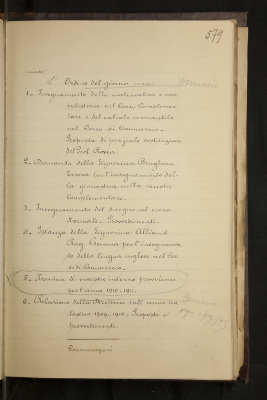 579
L'Ordine del giorno
1- Insegnamento della matematica e com-
putisteria nel Corso Complemen-
tare e del calcolo mercantile
nel Corso di Commercio-
Proposta di parziale sostituzione
del Prof. Rocca.
2- Domanda della Signorina Brughera
Teresa per l'insegnamento del-
la ginnastica nella scuola
Complementare.
3- Insegnamento del disegno nel corso
Normale- Provvedimenti.
4- Istanza della Signorina Alliaud
Rag. Gemma per l'insegnamen-
to della lingua inglese nel Cor-
so di Commercio.
5- Nomina di maestre interne provvisorie
per l'anno 1910-1911.
6- Relazione della Direttrice sull'anno sco-
lastico 1909-1910. Proposte e
provvedimenti.
Comunicazioni